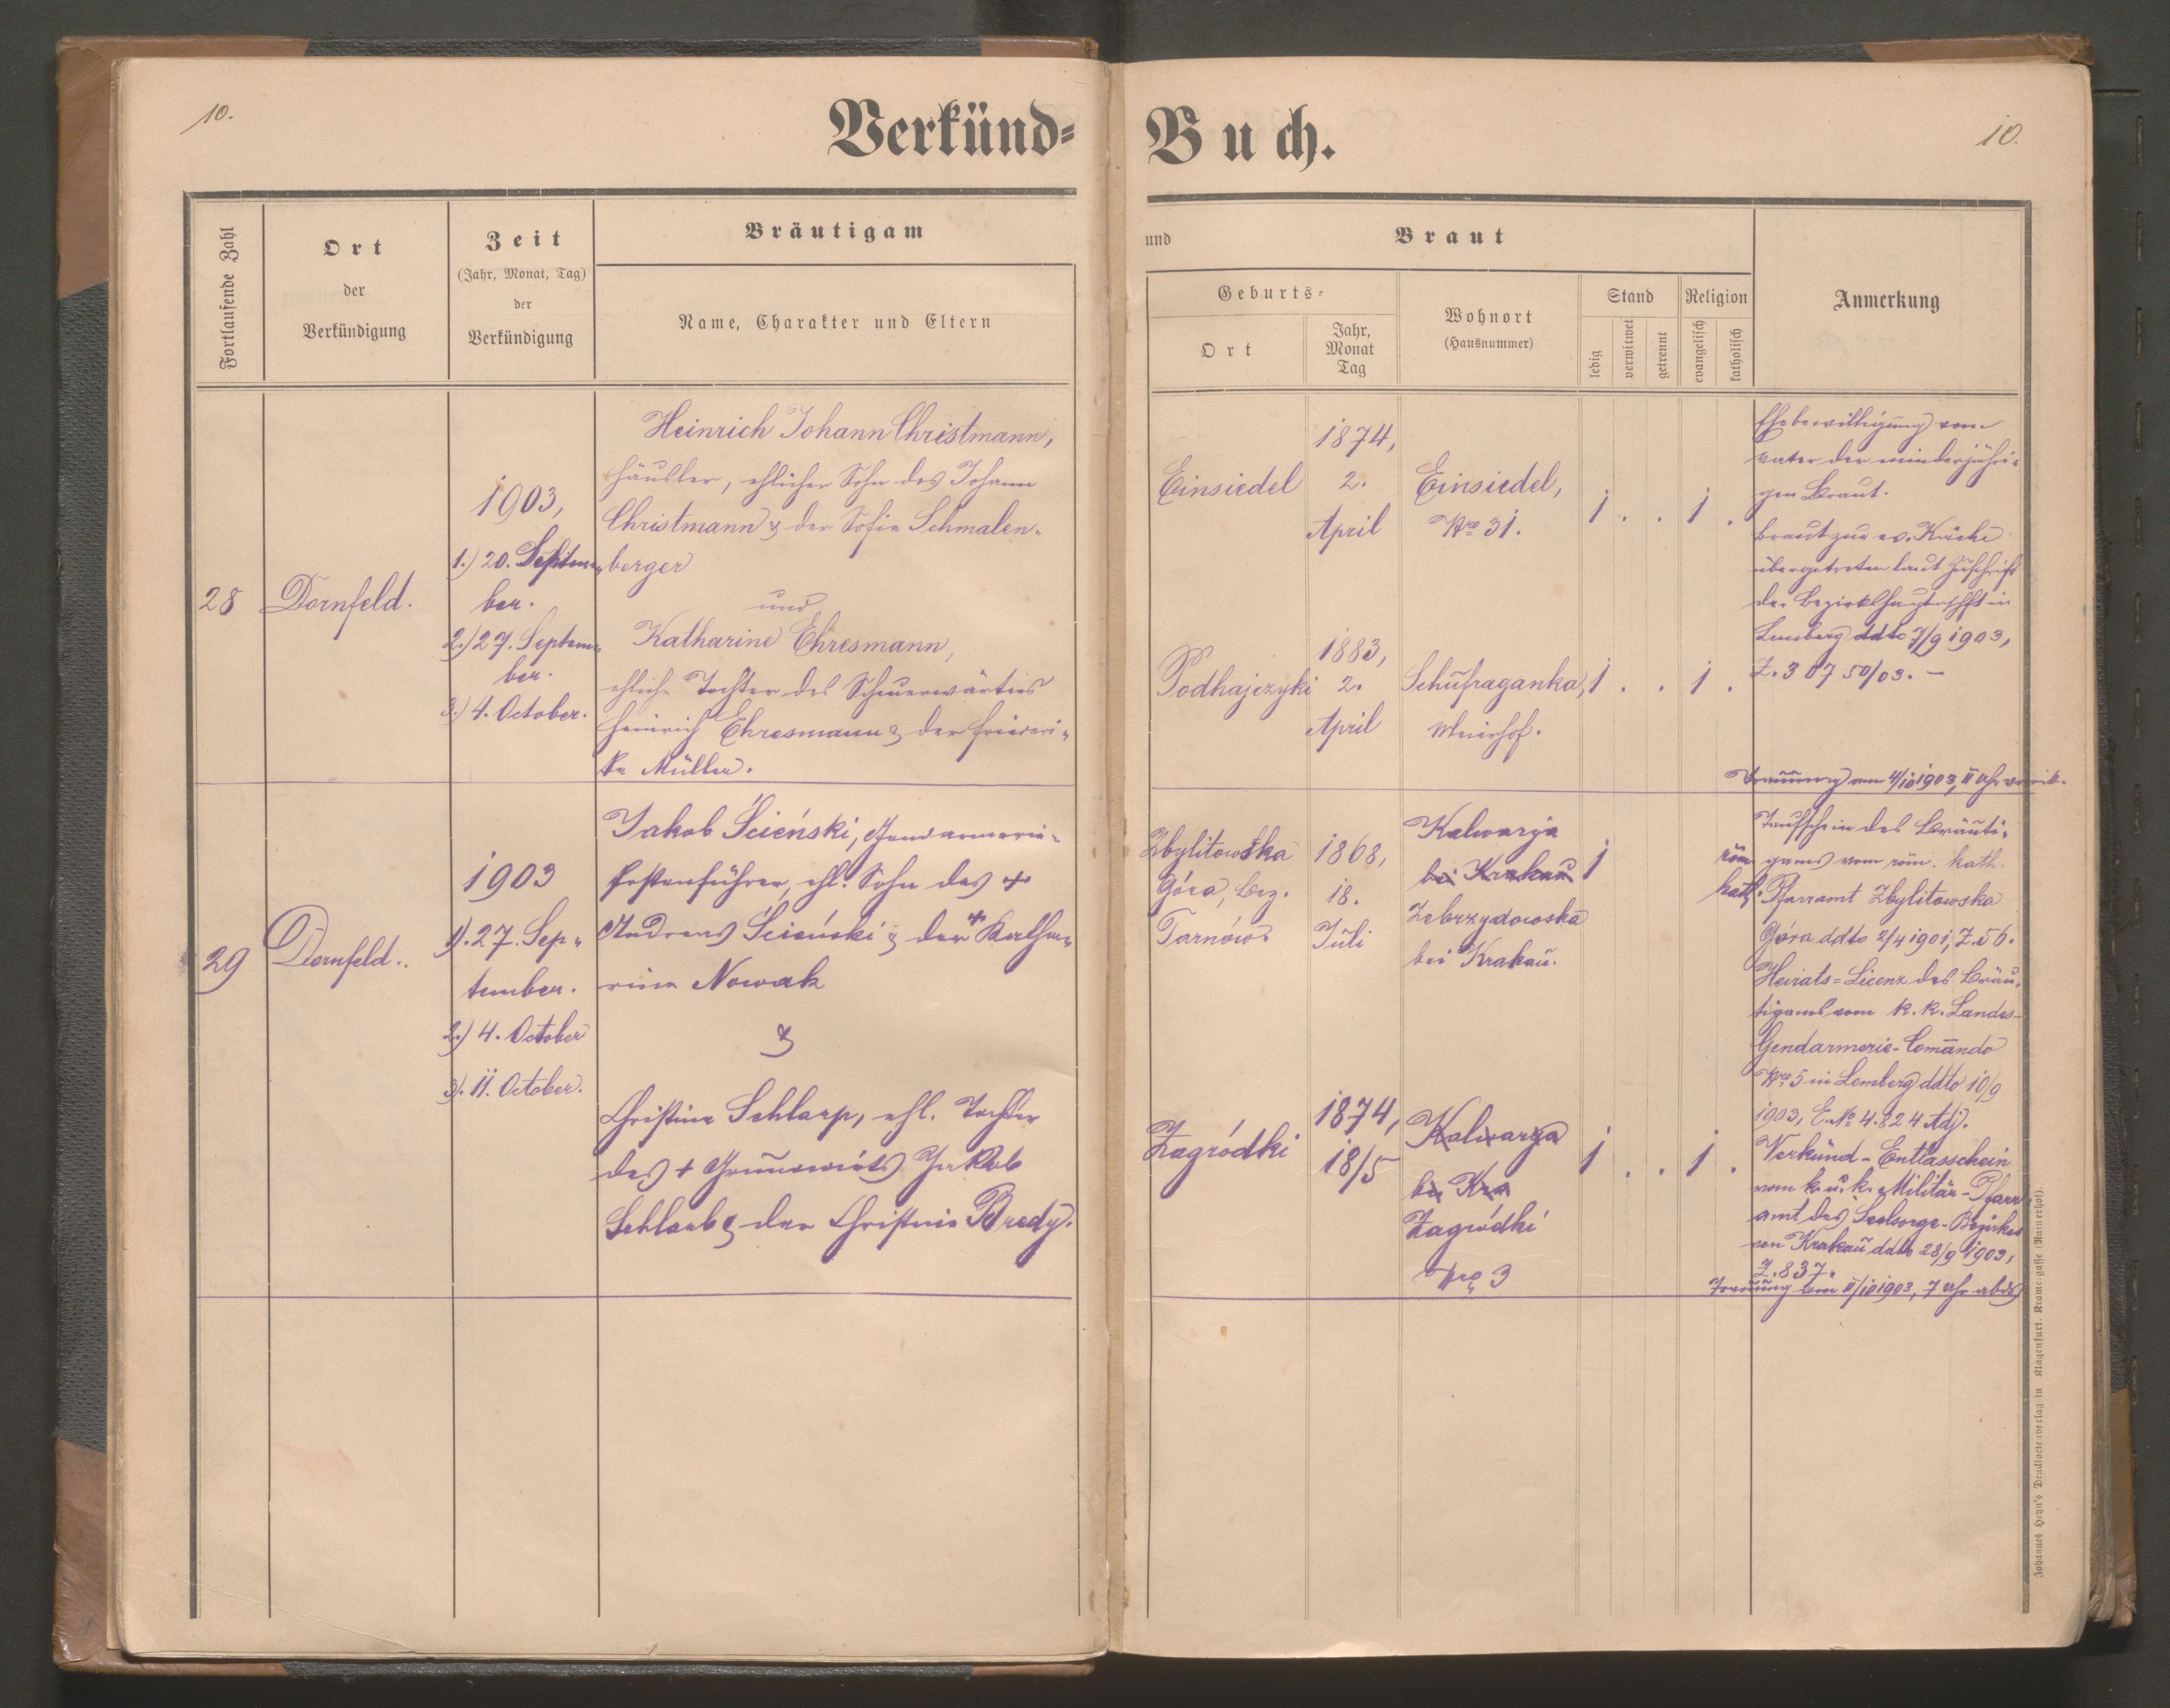 10.
Verkünd-
Buch.
10.
Fortlaufende Zahl
Ort
der
Verkündigung
Zeit
(Jahr, Monat, Tag)
der
Verkündigung
Bräutigam
Name, Charakter und Eltern
und
Braut
Geburts-
Ort
Jahr,
Monat
Tag
Wohnort
(Hausnummer)
Stand
ledig
verwitwet
getrennt
Religion
evangelisch
katholisch
Anmerkung
28
Dornfeld.
1903,
1.) 20. Septem-
ber.
2.) 27. Septem-
ber.
3.) 4. October.
Heinrich Johann Christmann,
Häusler, ehlicher Sohn des Johann
Christmann & der Sofie Schmalen-
berger
und
Katharine Ehresmann,
ehliche Tochter des Scheuerwärters
Heinrich Ehresmann & der Friederi-
ke Müller.
Einsiedel
1874,
2.
April
Einsiedel,
Nro 31.
1 . . 1 .
Podhajczyki
1883,
2.
April
Schufraganka,
Meierhof.
1 . . 1 .
Ehebewilligung vom
Vater der minderjähri-
gen Braut.
Braut zur ev. Kirche
übergetreten laut Zuschrift
der Bezirkshauptmschft in
Lemberg ddto 7/9 1903,
Z. 30750/03. —
Trauung am 4/10 1903, 11 Uhr vormit.
29
Dornfeld..
1903
1). 27. Sep-
tember.
2.) 4. October
3). 11. October.
Jakob Ścieński, Gendarmerie-
Postenführer, ehl. Sohn des +
Andreas Ścieński & der + Katha-
rine Nowak
&
Christine Schlarp, ehl. Tochter
des + Grundwirts Jakob
Schlarb & der Christine Bredy.
Zbylitowska
Góra, Bez.
Tarnów
1868,
18.
Juli
Kalwarja
bei Krakau
Zebrzydowska
bei Krakau.
1
röm.
kath.
Zagródki
1874,
18/5
Kalwarya
bei Kra
Zagródki
Nro 3
1 . . 1 .
Taufschein des Bräuti-
gams vom röm. kath.
Pfarramt Zbylitowska
Góra ddto 2/4 1901, Z. 56.
Heirats-Licenz des Bräu-
tigams vom k. k. Landes-
Gendarmerie-Comando
Nro 5 in Lemberg ddto 10/9
1903, E. No 4.824 Adj.
Verkünd-Entlasschein
vom k. u. k. Militär-Pfarr-
amt des Seelsorge-Bezirkes
von Krakau ddto 28/9 1903,
Z. 837.
Trauung am 11/10 1903, 7 Uhr abds
Johannes Heyn's Drucksortenverlag in Klagenfurt. Kramergasse (Rainerhof).